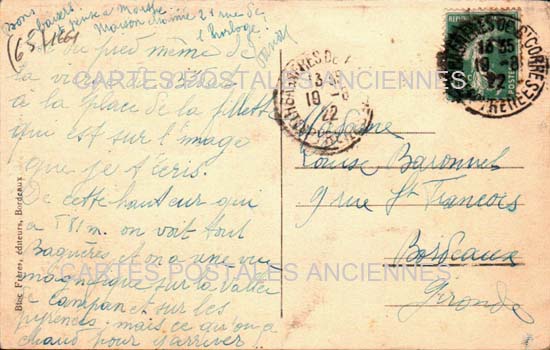 Bons baisers
(65) 1661
Maison
rue de
l'horloge
au pied même de
la vierge de
à la place de la fillette
qui est sur l'image
que je t'écris.
De cette hauteur qui
a 781 m. on voit tout
Bagnères et on a une vue
magnifique sur la vallée
de campan et sur les
pyrénées, mais ce qu'on a
chaud pour y arriver!
Bloc Frères, éditeurs, Bordeaux
BAGNÈRES DE BIGORRE
13 35
19 -8
22
BAGNÈRES DE BIGORRE
13 35
19 -8
22
PYRÉNÉES
POSTES
Madame
Louise Baronnet
9 rue St François
Bordeaux
Gironde
CARTES POSTALES ANCIENNES
CARTES POSTALES ANCIENNES